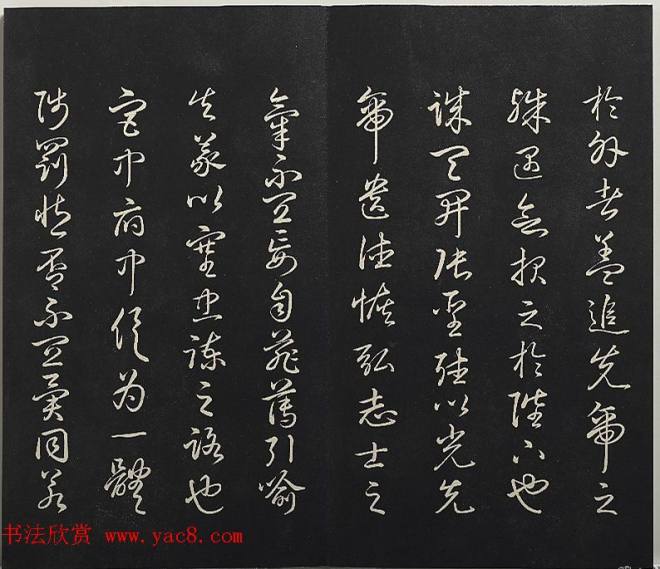 於外者蓋追先帝之
殊遇欲報之於陛下也
誠宜開張聖聽以光先
帝遺德恢弘志士之
氣不宜妄自菲薄引喻
失義以塞忠諫之路也
宮中府中俱为一體
陟罰臧否不宜異同若
书法欣赏 www.yac8.com